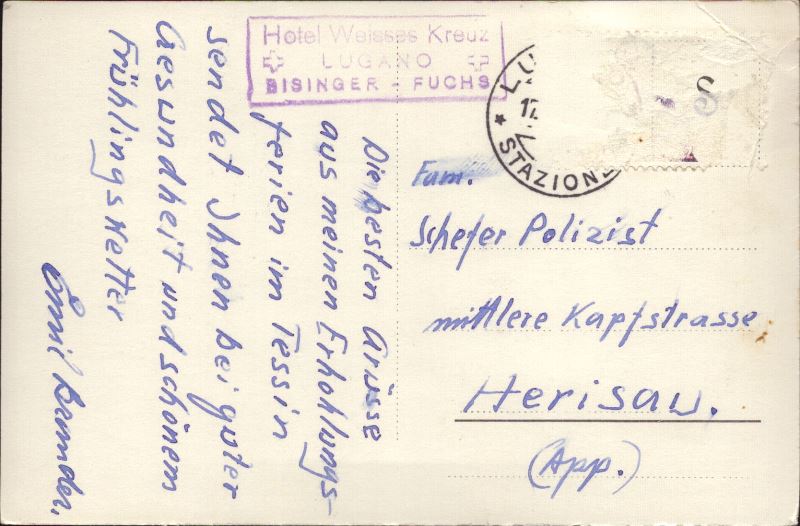 Hotel Weisses Kreuz
LUGANO
BISINGER - FUCHS
LU
17.
STAZIONE
Die besten Grüsse
aus meinen Erhohlungs-
ferien im Tessin
sendet Ihnen bei guter
Gesundheit und schönem
Frühlingswetter
Emil
Fam.
Schefer Polizist
mittlere Kapfstrasse
Herisau.
(App.)